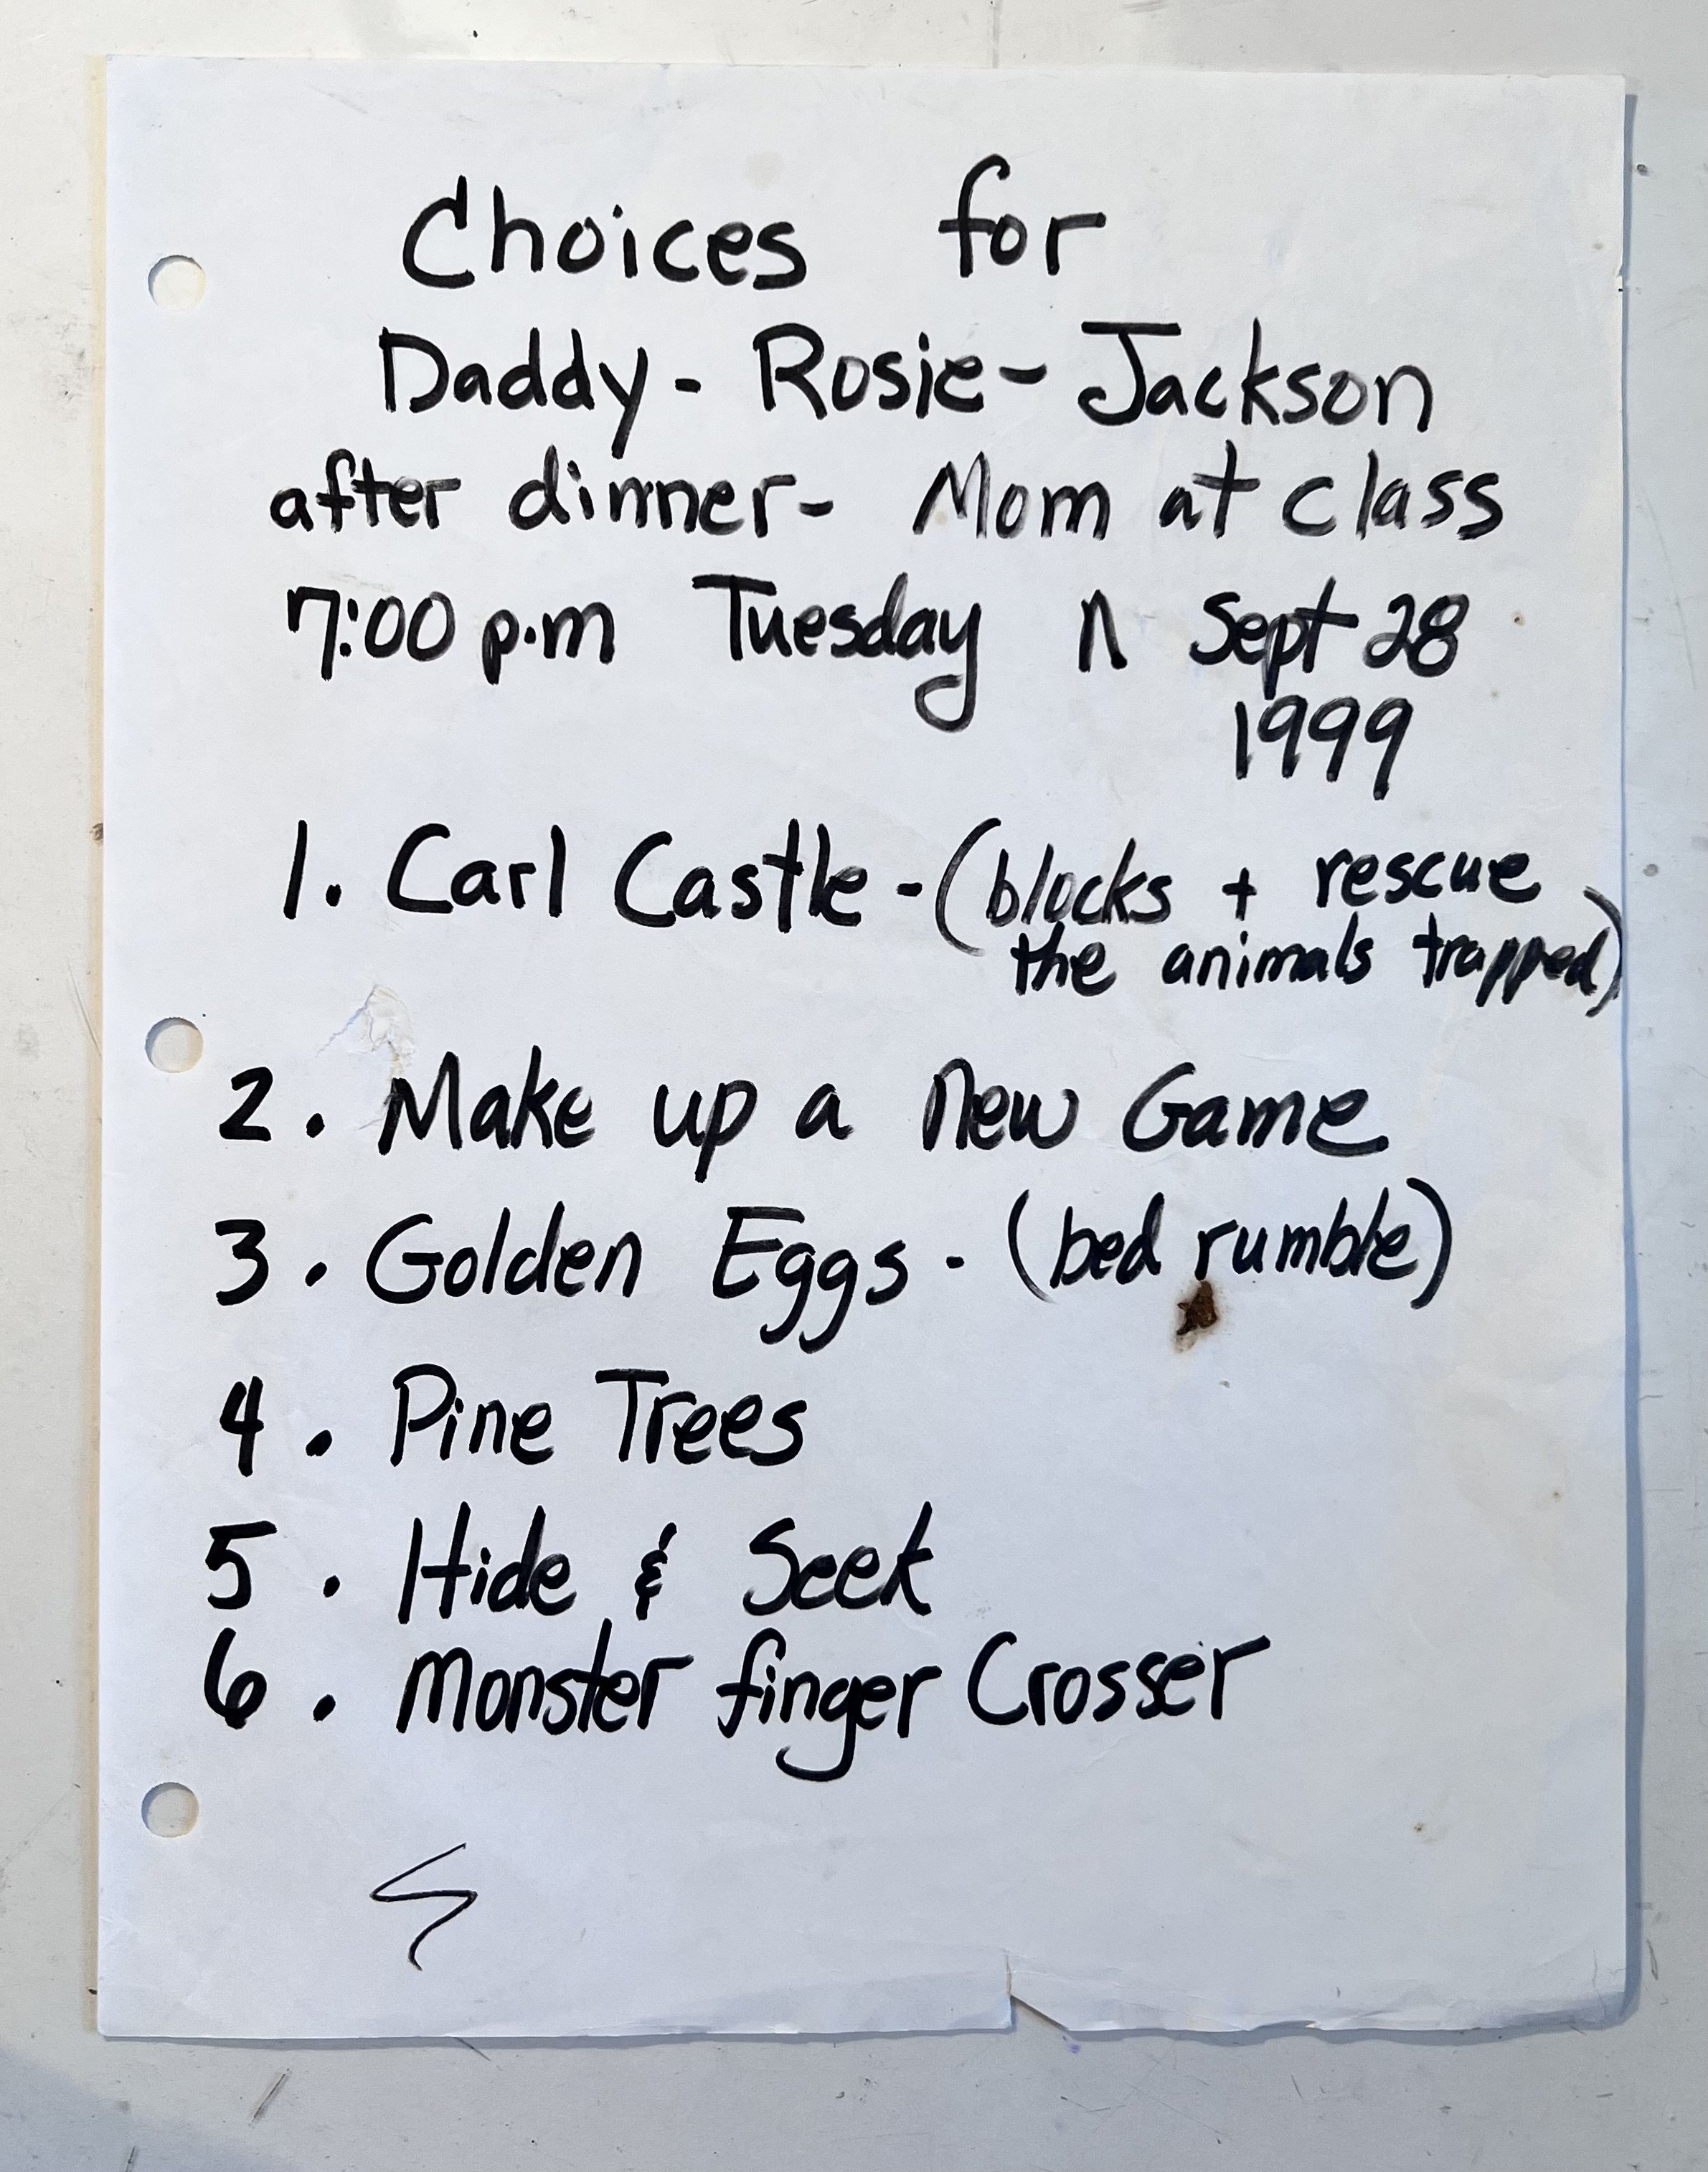 Choices for
Daddy - Rosie - Jackson
after dinner - Mom at class
7:00 p.m Tuesday n Sept 28
1999
1. Carl Castle - (blocks + rescue
the animals trapped)
2. Make up a new Game
3. Golden Eggs - (bed rumble)
4. Pine Trees
5. Hide & Seek
6. Monster finger Crosser